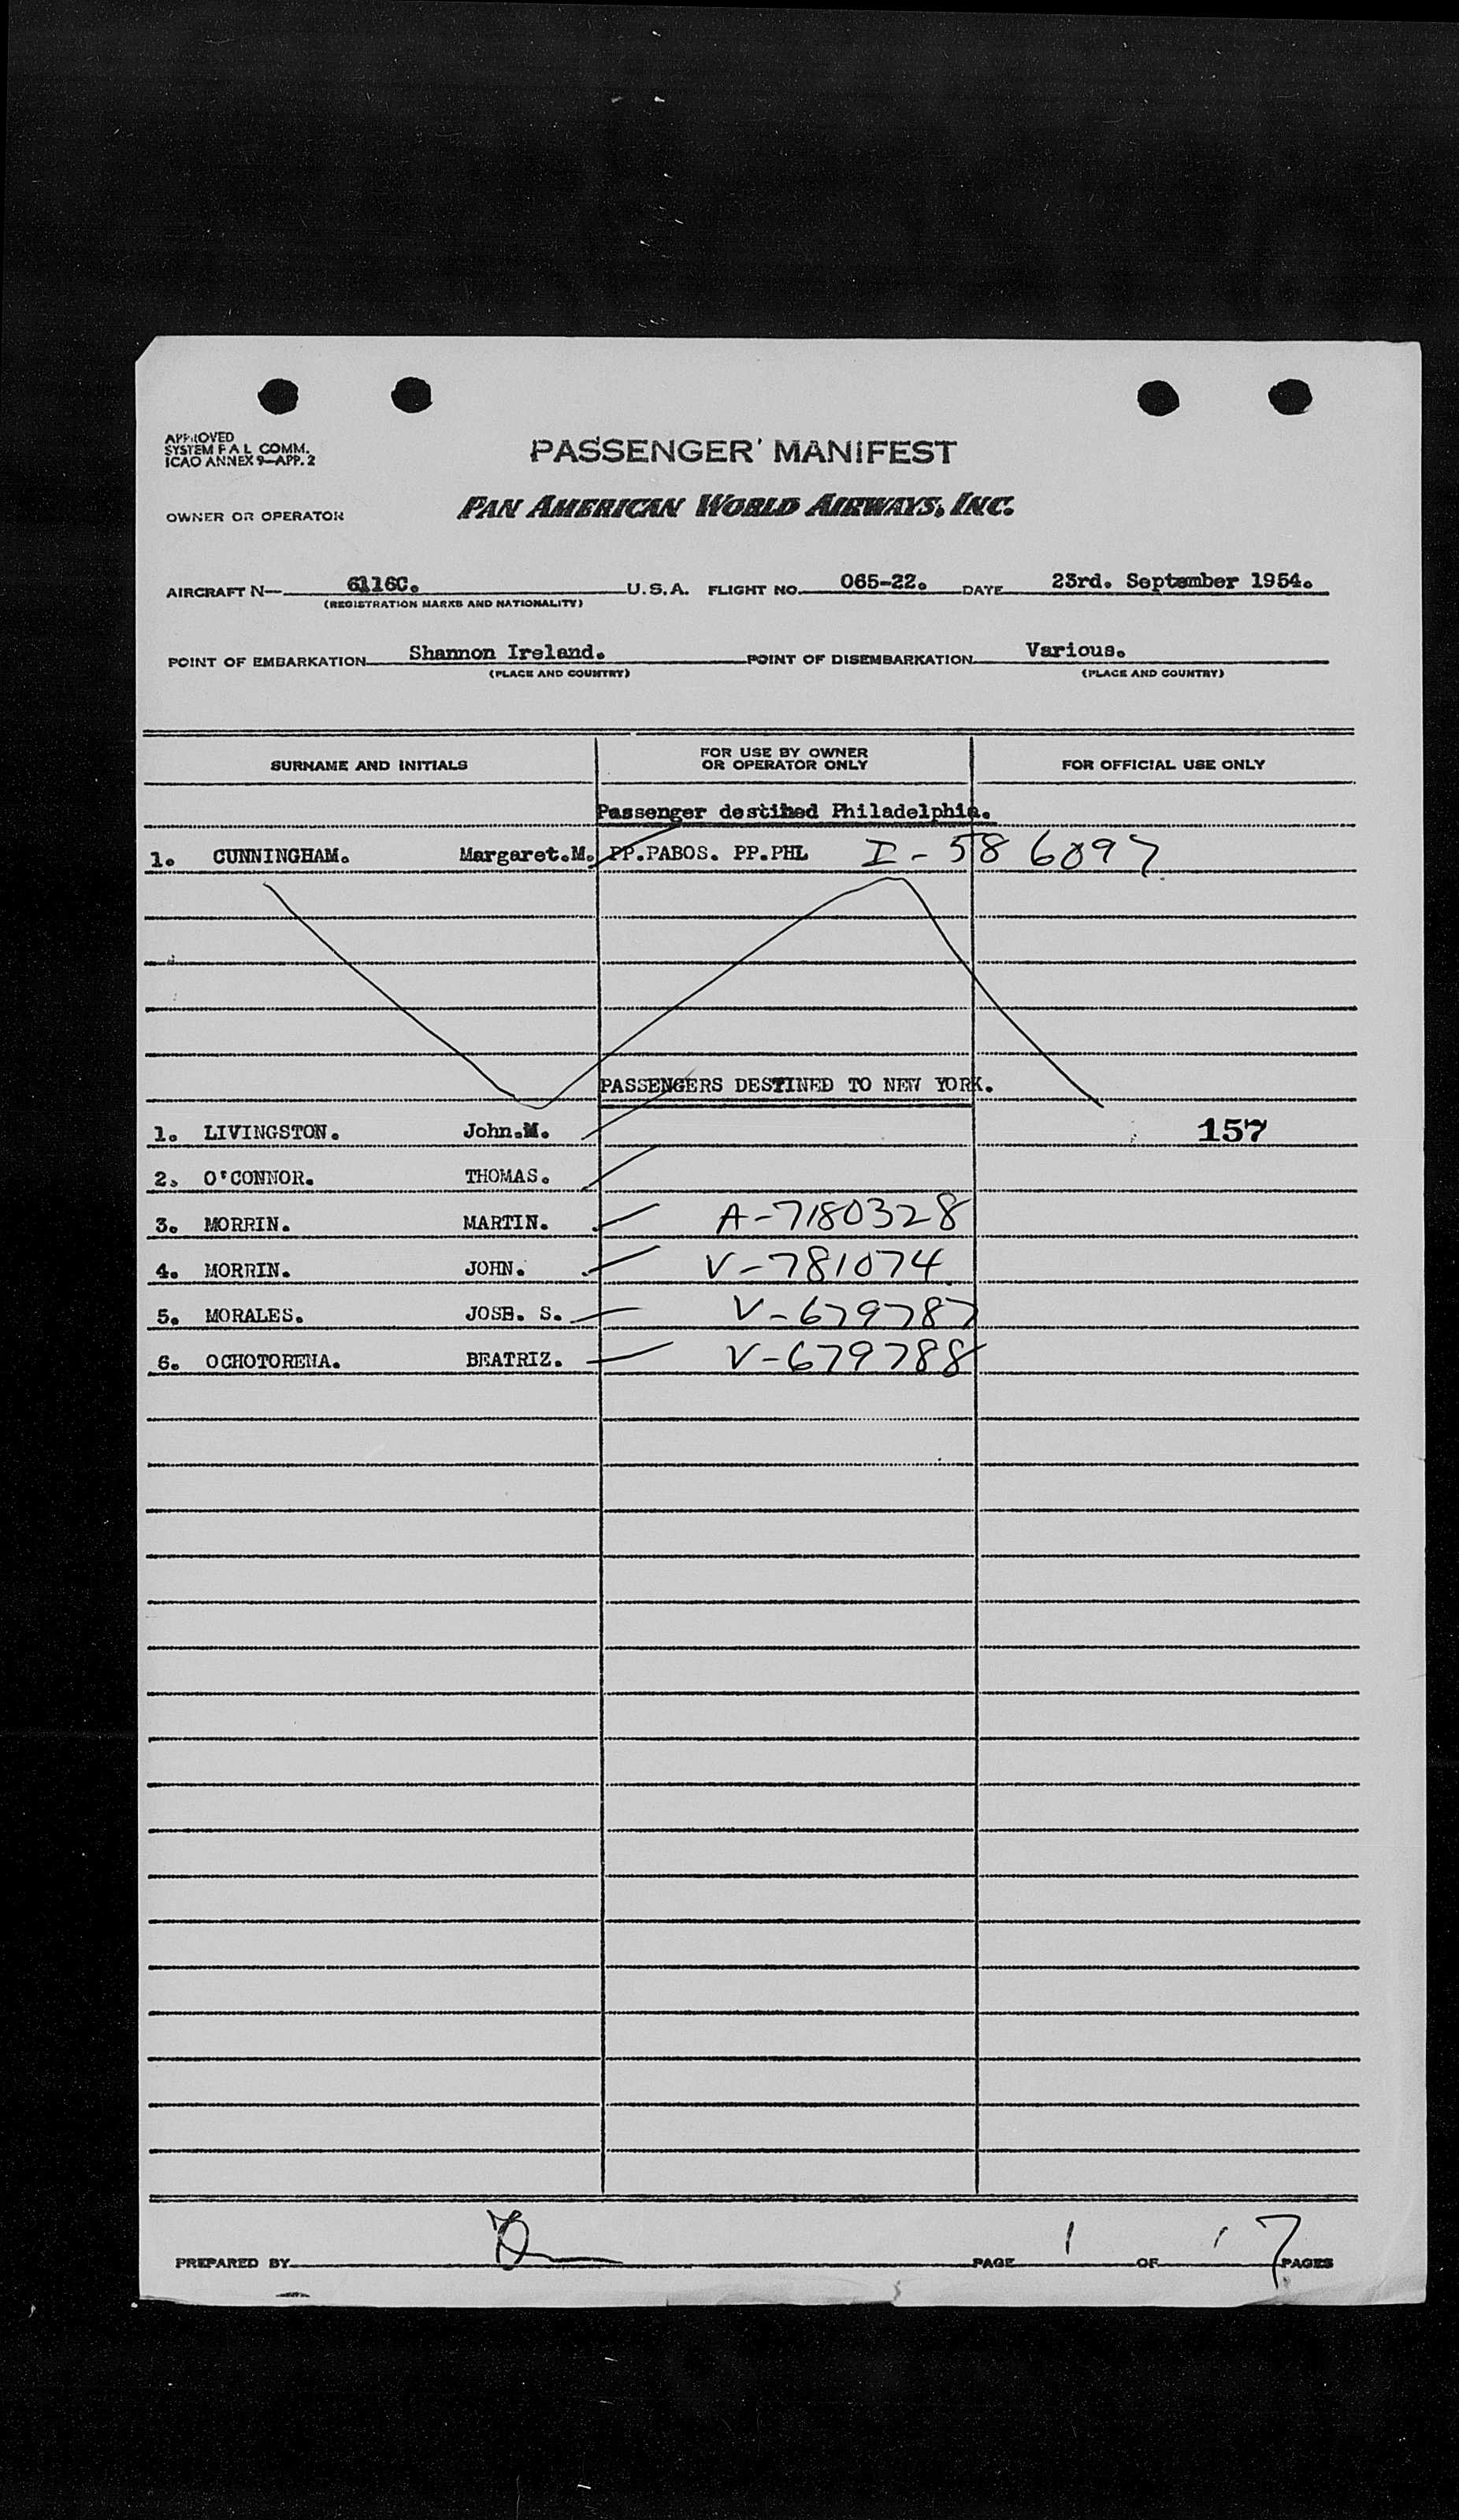 APPROVED
SYSTEM F A L COMM.
ICAO ANNEX 9—APP. 2
PASSENGER MANIFEST
OWNER OR OPERATOR PAN AMERICAN WORLD AIRWAYS, INC.
AIRCRAFT N— 6116C. U.S.A. FLIGHT NO. 065-22. DATE 23rd. September 1954.
(REGISTRATION MARKS AND NATIONALITY)
POINT OF EMBARKATION Shannon Ireland. POINT OF DISEMBARKATION Various.
(PLACE AND COUNTRY) (PLACE AND COUNTRY)
SURNAME AND INITIALS FOR USE BY OWNER OR OPERATOR ONLY FOR OFFICIAL USE ONLY
Passenger destined Philadelphia.
1. CUNNINGHAM. Margaret.M. PP.PABOS. PP.PHL I-586097
PASSENGERS DESTINED TO NEW YORK.
1. LIVINGSTON. John.M. 157
2. O'CONNOR. THOMAS.
3. MORRIN. MARTIN. A-7180328
4. MORRIN. JOHN. V-781074
5. MORALES. JOSE. S. V-679787
6. OCHOTORENA. BEATRIZ. V-679788
PREPARED BY PAGE 1 OF 17 PAGES